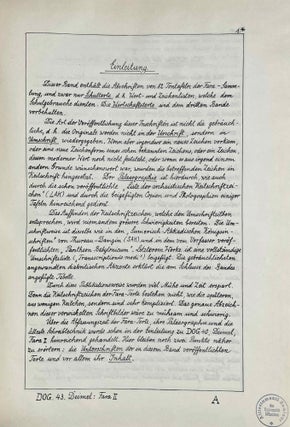 1*
Einleitung
Dieser Band enthält die Abschriften von 82 Tontafeln der Fara-Samm-
lung, und zwar nur Schultexte, d.h. Wort- und Zeichenlisten, welche dem
Schulgebrauche dienten. Die Wirtschaftstexte sind dem dritten Bande
vorbehalten.
Die Art der Veröffentlichung dieser Inschriften ist nicht die gebräuch-
liche, d.h. die Originale werden nicht in der Urschrift, sondern in
Umschrift wiedergegeben. Wenn aber irgendwo ein neues Zeichen vorkam,
oder eine neue Zeichenform eines schon bekannten Zeichens, oder ein Zeichen
dessen moderner Wert noch nicht feststeht, oder wenn es aus irgend einem
andern Grunde wünschenswert war, wurden die betreffenden Zeichen im
Keilschrift hinzugesetzt. Der Paläographie ist hierdurch, wie auch
durch die schon veröffentlichte "Liste der archaistischen Keilschriftzei-
chen" (LAK) und durch die beigefügten Copien und Photographien einiger
Tafeln hinreichend gedient.
Das Auffinden der Keilschriftzeichen, welche den Umschriftlisten
entsprechen, wird niemandem größere Schwierigkeiten bereiten. Die Um-
schriftweise ist dieselbe wie in den "Sumerisch Akkadischen Königsin-
schriften" von Thureau-Dangin (SAK) und in dem vom Verfasser veröf-
fentlichten "Pantheon Babylonicum". Letzterem Werke ist eine vollständige
Umschriftsliste ("Transcriptionis modi") beigefügt. Die gebräuchlichsten
angewandten diakritischen Akzente erklärt die am Schlusse des Bandes
angefügte Tabelle.
Durch diese Publikationsweise wurden viel Mühe und Zeit erspart.
Denn die Keilschriftzeichen der Fara-Texte bestehen nicht, wie die späteren,
aus wenigen Keilchen, sondern sind sehr kompliziert. Das genaue Abzeich-
nen dieser vornehmlichen Schriftbilder wäre zu mühsam und schwierig.
Über die Abfassungszeit der Fara-Texte, ihre Paläographie und die
älteste Schreibtechnik wurde schon in der Einleitung zu DOG 40, Deimel,
Fara I hinreichend gehandelt. Hier bleiben noch zwei Punkte näher
zu erörtern: die Unterschriften der in diesem Band veröffentlichten
Texte und vor allem ihr Inhalt.
DOG. 43. Deimel: Fara II
A